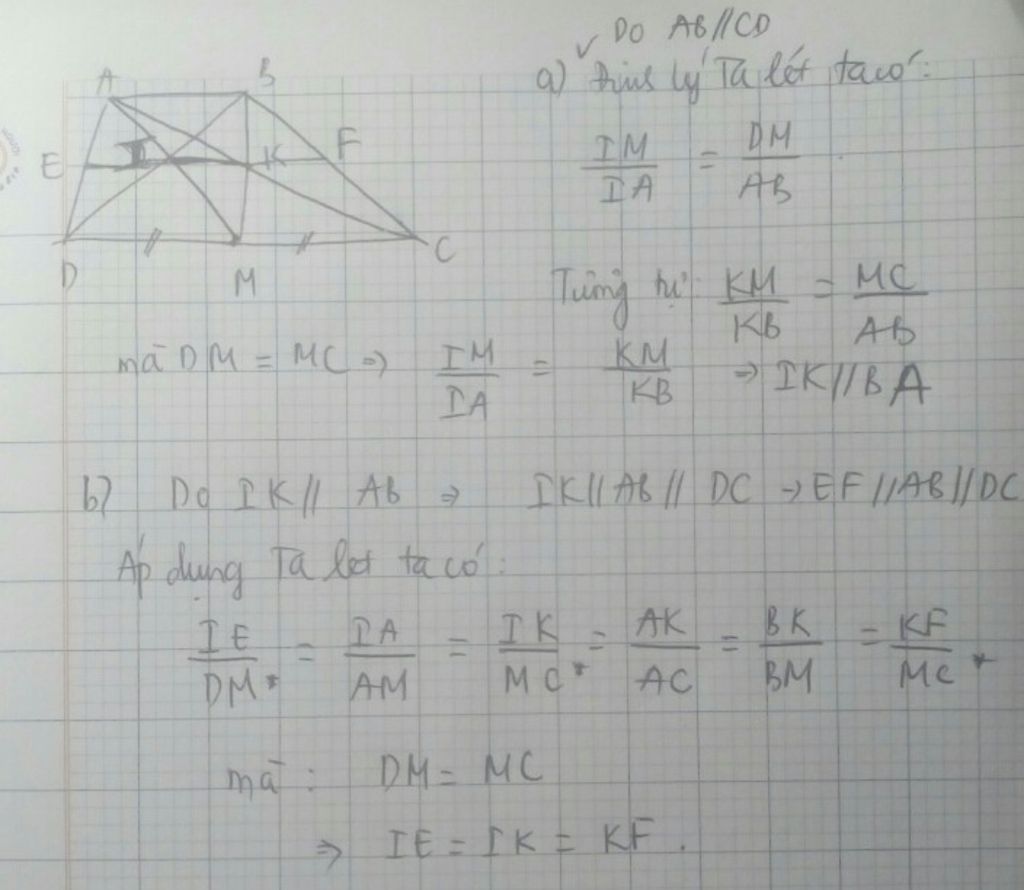 Do AB//CD
a) Định lý Ta lét ta có:
A B
E I K F
D M C
IM/IA = DM/AB
Tương tự: KM/KB = MC/AB
mà DM = MC => IM/IA = KM/KB => IK//BA
b) Do IK// AB => IK//AB// DC → EF//AB//DC
Áp dụng Ta let ta có:
IE/DM* = IA/AM = IK/MC* = AK/AC = BK/BM = KF/MC*
mà: DM = MC
=> IE = IK = KF.